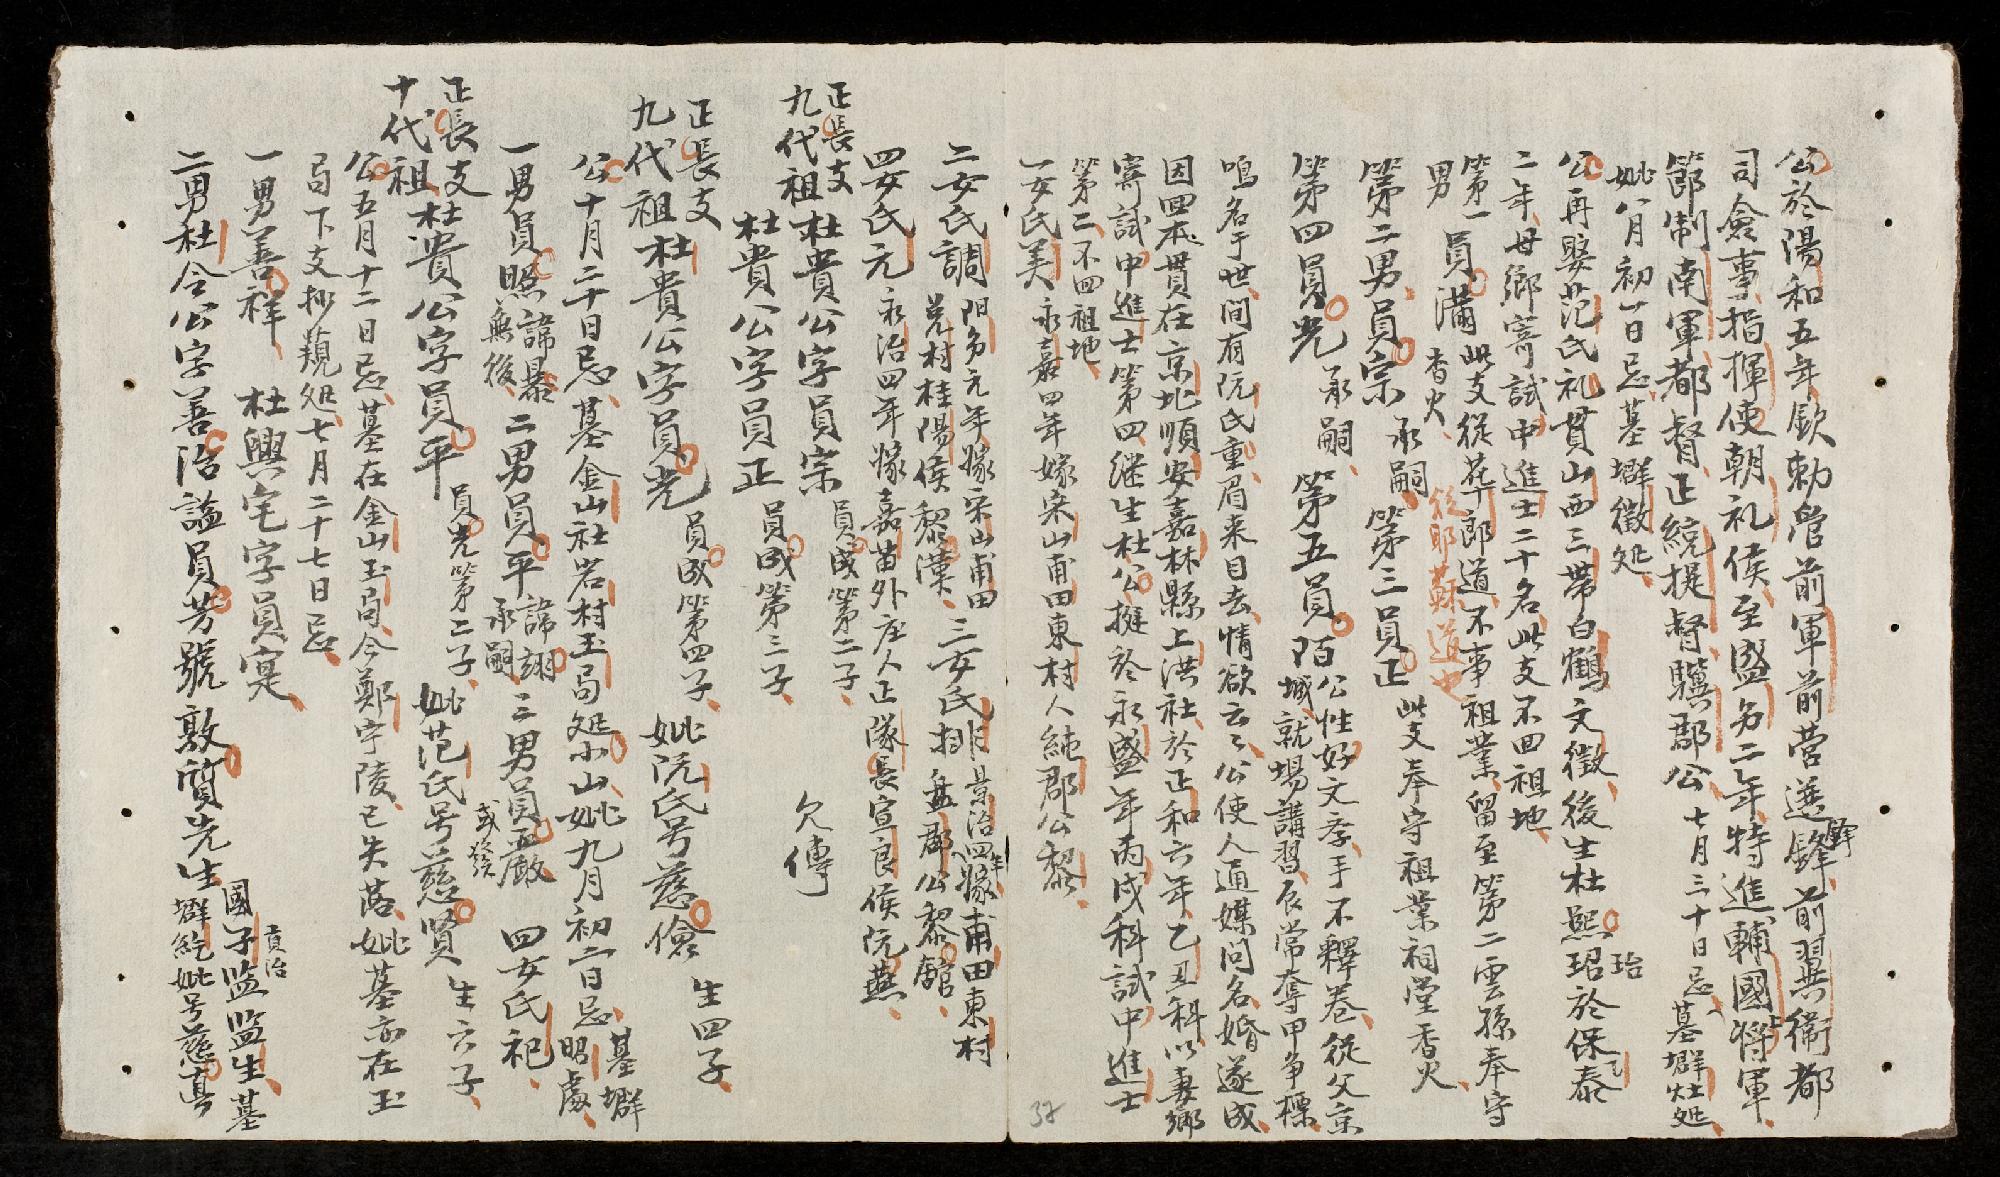 公於陽和五年欽勅管前軍前營選鋒前翼衛都
司僉事指揮使朝礼侯至盛夛二年特進輔國上將軍
節制南軍都督正統提督驥郡公七月三十日忌墓墿灶処
妣八月初一日忌墓墿徵処
公再娶范氏礼貫山西三帶白鶴文徵後生杜熙玿於保泰
二年毋鄉寄試中進士二十名此支不囬祖地
第一男員滿香火此支從花郎道不事祖業留至第二雲孫奉守
從耶蘇道也
第二男員宗承嗣第三員正此支奉守祖業祠堂香火
第四員光承嗣第五員陌公性好文孝手不釋卷從父京城就場講習辰常奪甲争標
鳴名于世間有阮氏重眉来目去情欲云云公使人通媒问名婚遂成
因囬本貫在京北順安嘉林縣上洪社於正和六年乙丑科以妻鄉
寄試中進士第四継生杜公挺於永盛年丙戌科試中進士
第二不囬祖地
一女氏美永嘉四年嫁宋山甫田東村人純郡公黎
二女氏調阳夛元年嫁宋山甫田兑村桂陽侯黎漢三女氏排景治四年嫁甫田東村盘郡公黎舘
四女氏元永治四年嫁嘉苗外庄人正隊長宣良侯阮燕
正長支九代祖杜貴公字員宗員成第二子
杜貴公字員正員成第三子欠傳
正長支九代祖杜貴公字員光員成第四子妣阮氏号慈儉生四子
公十月二十日忌墓金山社岩村玉局処小山妣九月初二日忌墓墿昭處
一男員照諱暴無後二男員平諱翊承嗣三男員嚴或發四女氏祀
正長支十代祖杜貴公字員平員光第二子妣范氏号慈賢生六子
公五月十二日忌墓在金山玉局今鄭宇陵已失落妣墓亦在玉
局下支抄覩処七月二十七日忌
一男善祥杜興宅字員寔貢治國子監監生墓
二男杜令公字善治謚員芳號敦質先生墿紇妣号慈真